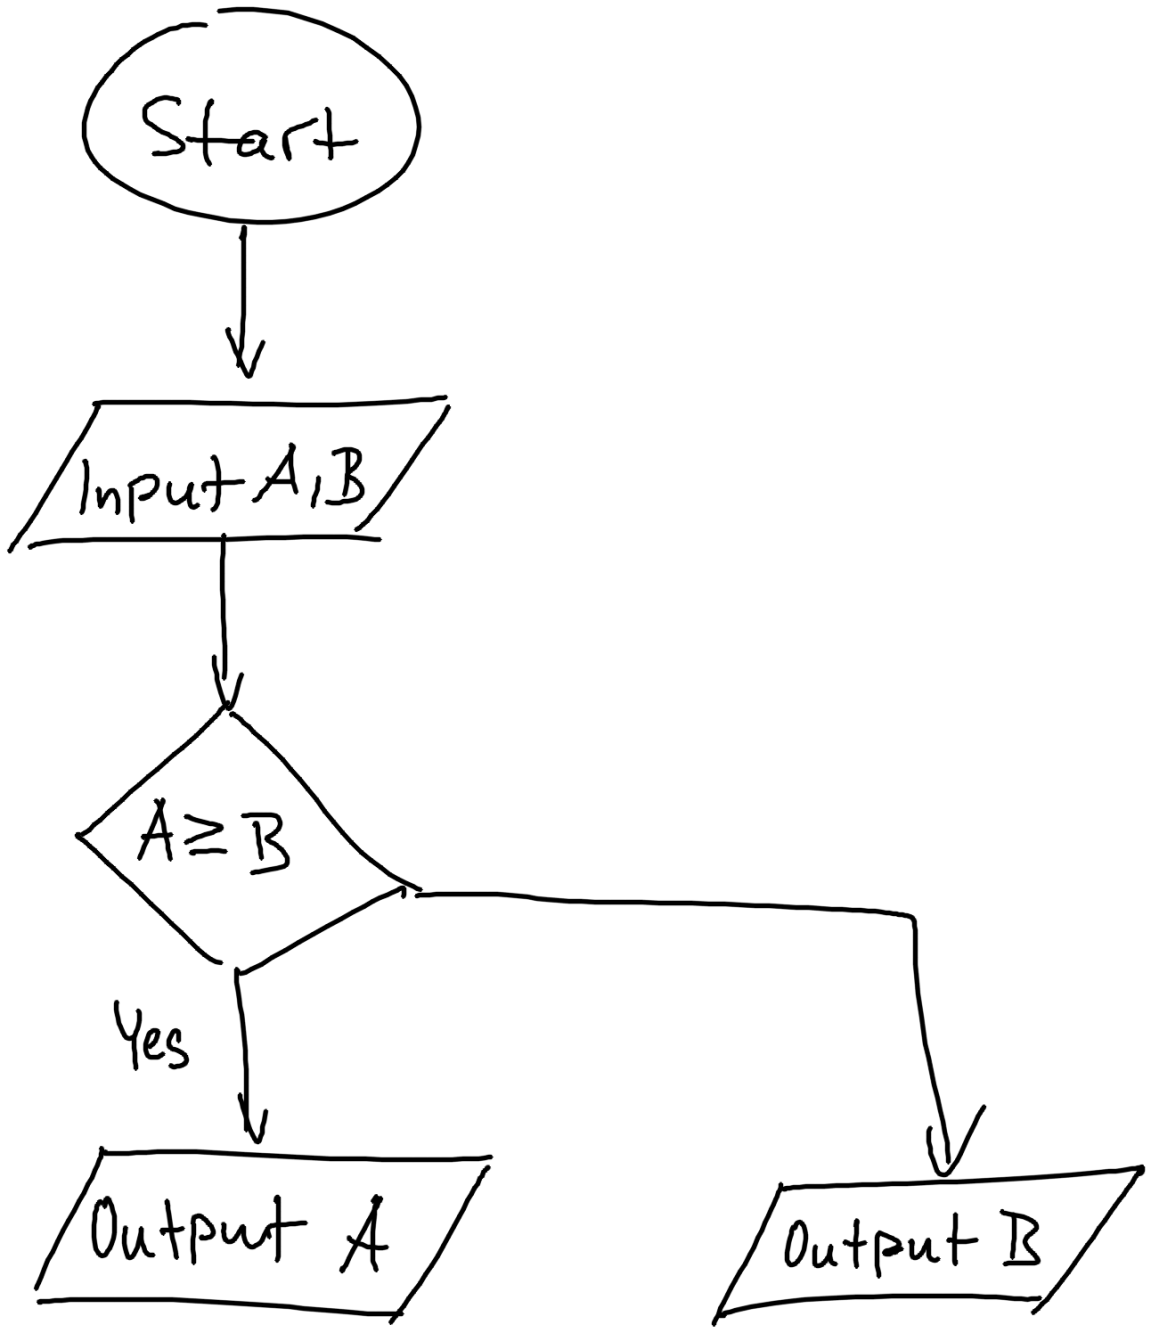 Start
Input A, B
A ≥ B
Yes
Output A
Output B